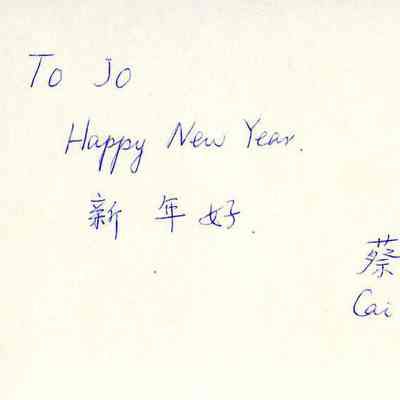 To Jo
Happy New Year.
新年好.
蔡
Cai